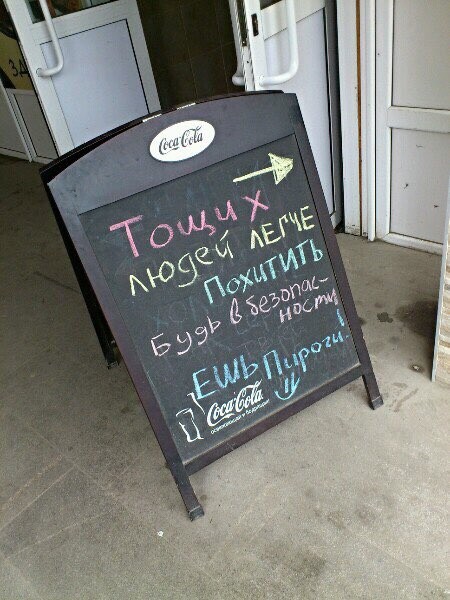 Coca-Cola
Тощих
людей ЛЕГЧЕ
Похитить
Будь в безопас-
ности!
ЕШЬ Пироги.
Coca-Cola